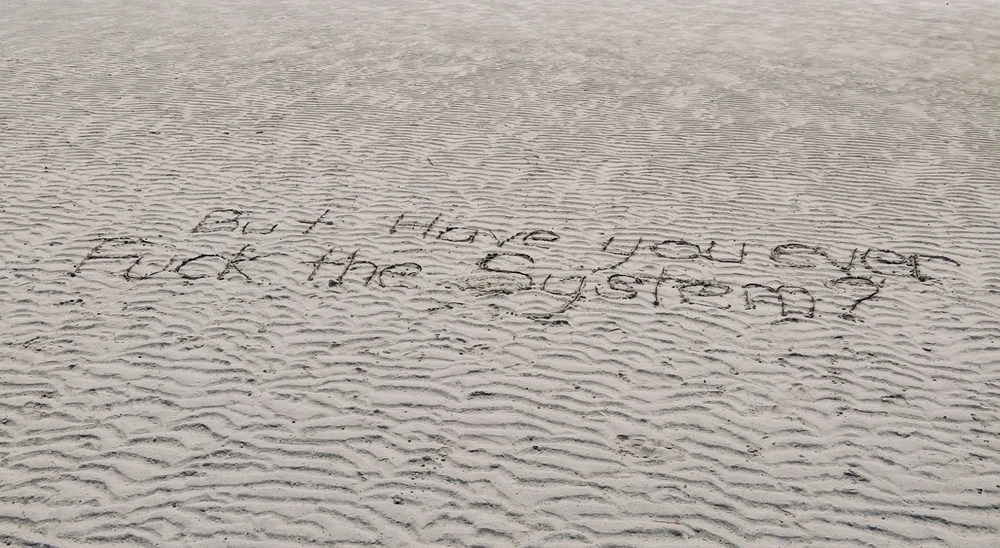 But Have you ever
Fuck the System?